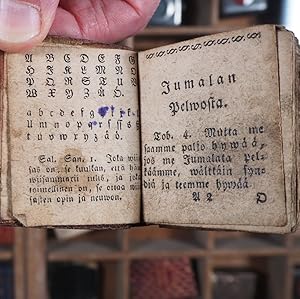 A B C D E F G
H I K L M N O
P Q R S T U
W X Y Z Å Ö.
a b c d e f g
l m n o p q r s ſ s
t u v w x y z å ö
Sal. San. 1. Joka
sas on, se kuulkan, että
toimellinen on, se ottaa
jahen opin ja neuwon.
Jumalan
Pelwosta.
Tob. 4. Mutta me
saamme paljo hywää,
jos me Jumalata pel-
käämme, wältäin syn-
diä ja teemme hywää.
A 2 D